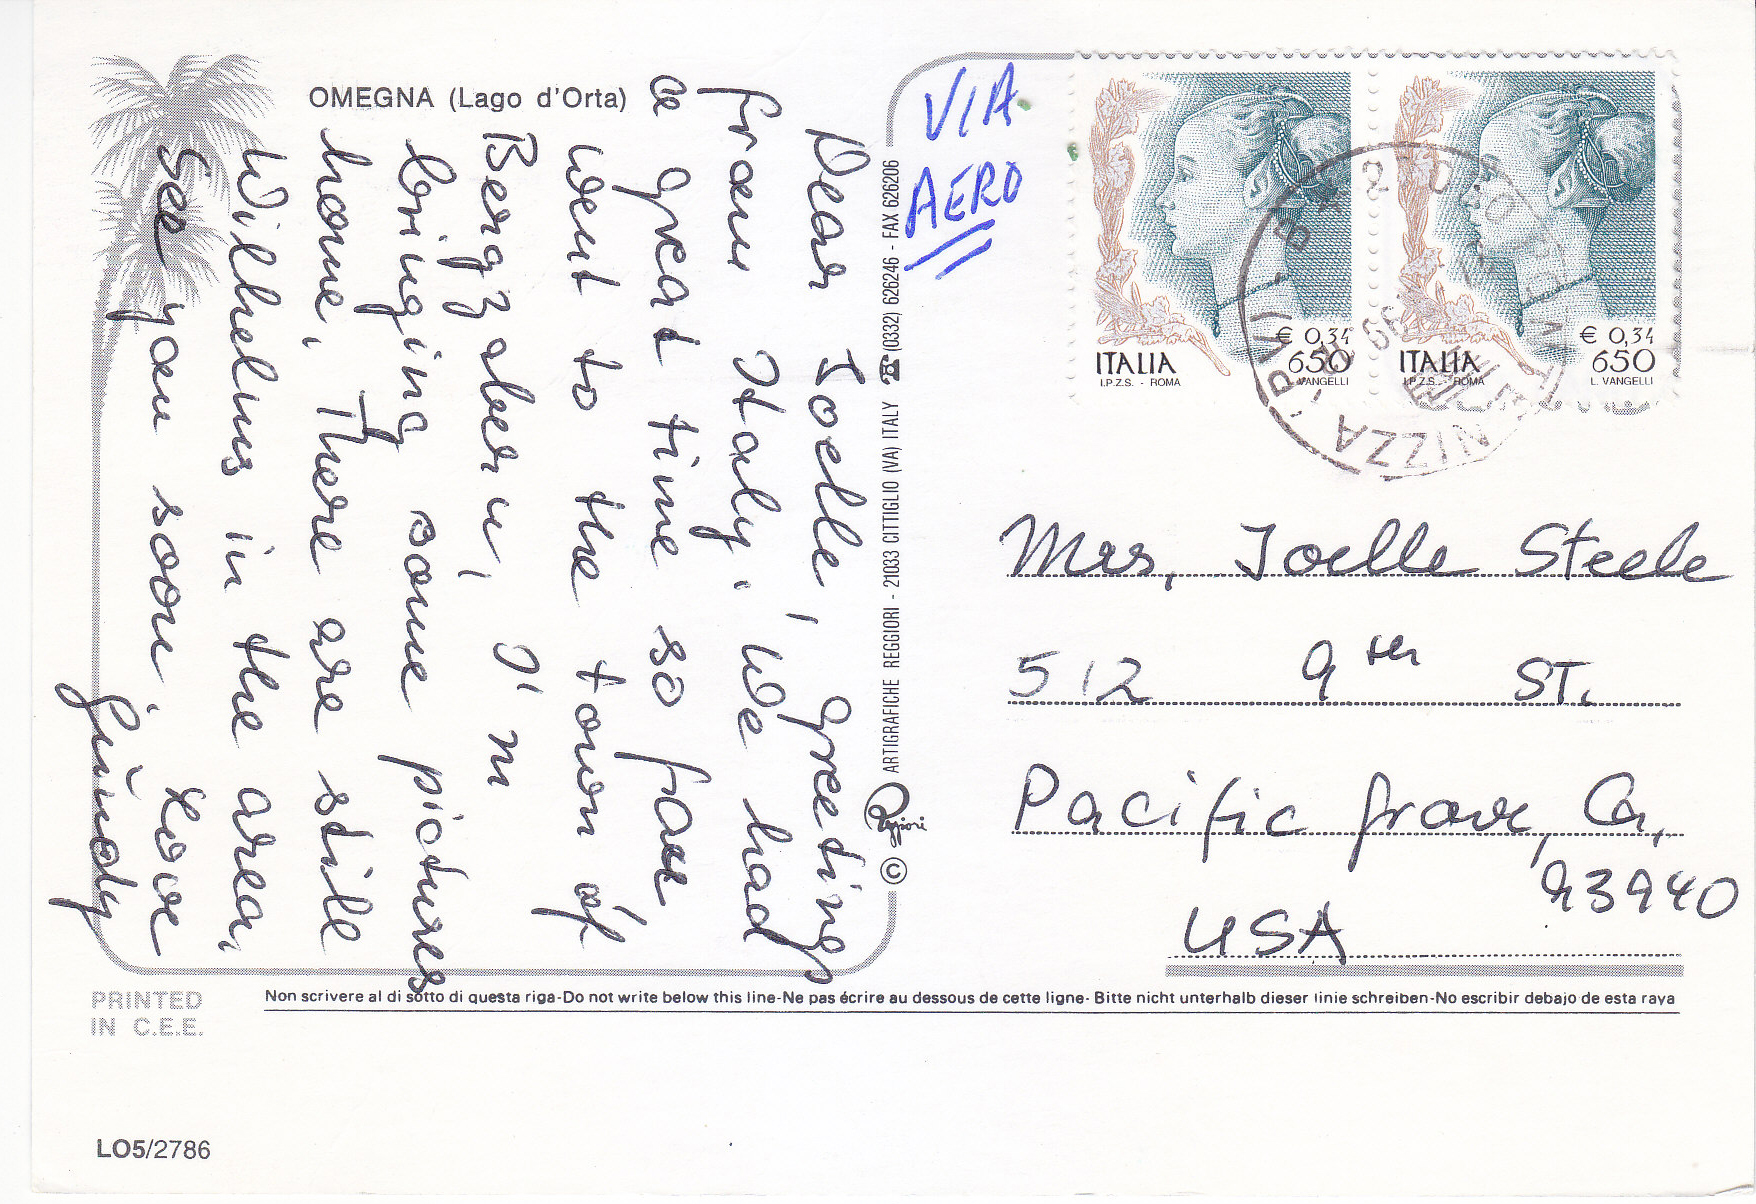 OMEGNA (Lago d'Orta)
Dear Joelle, Greetings
from Italy. We had
a great time so far
went to the town of
Bergalern, I'm
bringing some pictures
home, There are still
Wilhelms in the area,
See you soon, Love
Gundy
ARTIGRAFICHE REGGIORI - 21033 CITTIGLIO (VA) ITALY ☎ (0332) 626246 - FAX 626206
Reggiori
©
VIA
AERO
ITALIA
I.P.Z.S. - ROMA
€ 0,34
650
L. VANGELLI
ITALIA
I.P.Z.S. - ROMA
€ 0,34
650
L. VANGELLI
NIZZA
Mrs. Joelle Steele
512 9th ST.
Pacific Grove, Ca.
93940
USA
PRINTED
IN C.E.E.
Non scrivere al di sotto di questa riga-Do not write below this line-Ne pas écrire au dessous de cette ligne- Bitte nicht unterhalb dieser linie schreiben-No escribir debajo de esta raya
LO5/2786